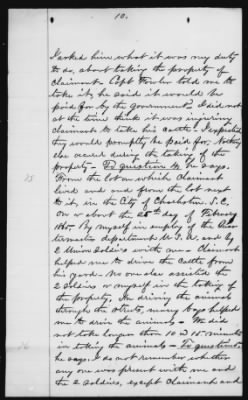 10.
I asked him what it was my duty
to do about taking the property of
claimant - Capt Fowler told me to
take it, he said it would be
paid for by the government. I did not
at the time think it was injuring
claimant to take his cattle. I expected
they would promptly be paid for. Nothing
else occured during the taking of the
property - To question 4, he says
From the lot on which claimant
lived and and from the lot next
to it, in the City of Charleston, S.C.
On or about the 25th day of February
1865. By myself in employ of the Quar
termaster department U.S.A. and by
2 Union Soldiers with me. Claimant
helped me to drive the cattle from
his yard. No one else assisted the
2 soldiers or myself in the taking of
the property. In driving the animals
through the streets, many boys helped
me to drive the animals - We did
not take longer than 10 or 15 minutes
in taking the animals - To question
he says, I do not remember whether
any one was present with me and
the 2 soldiers, except claimant and
25